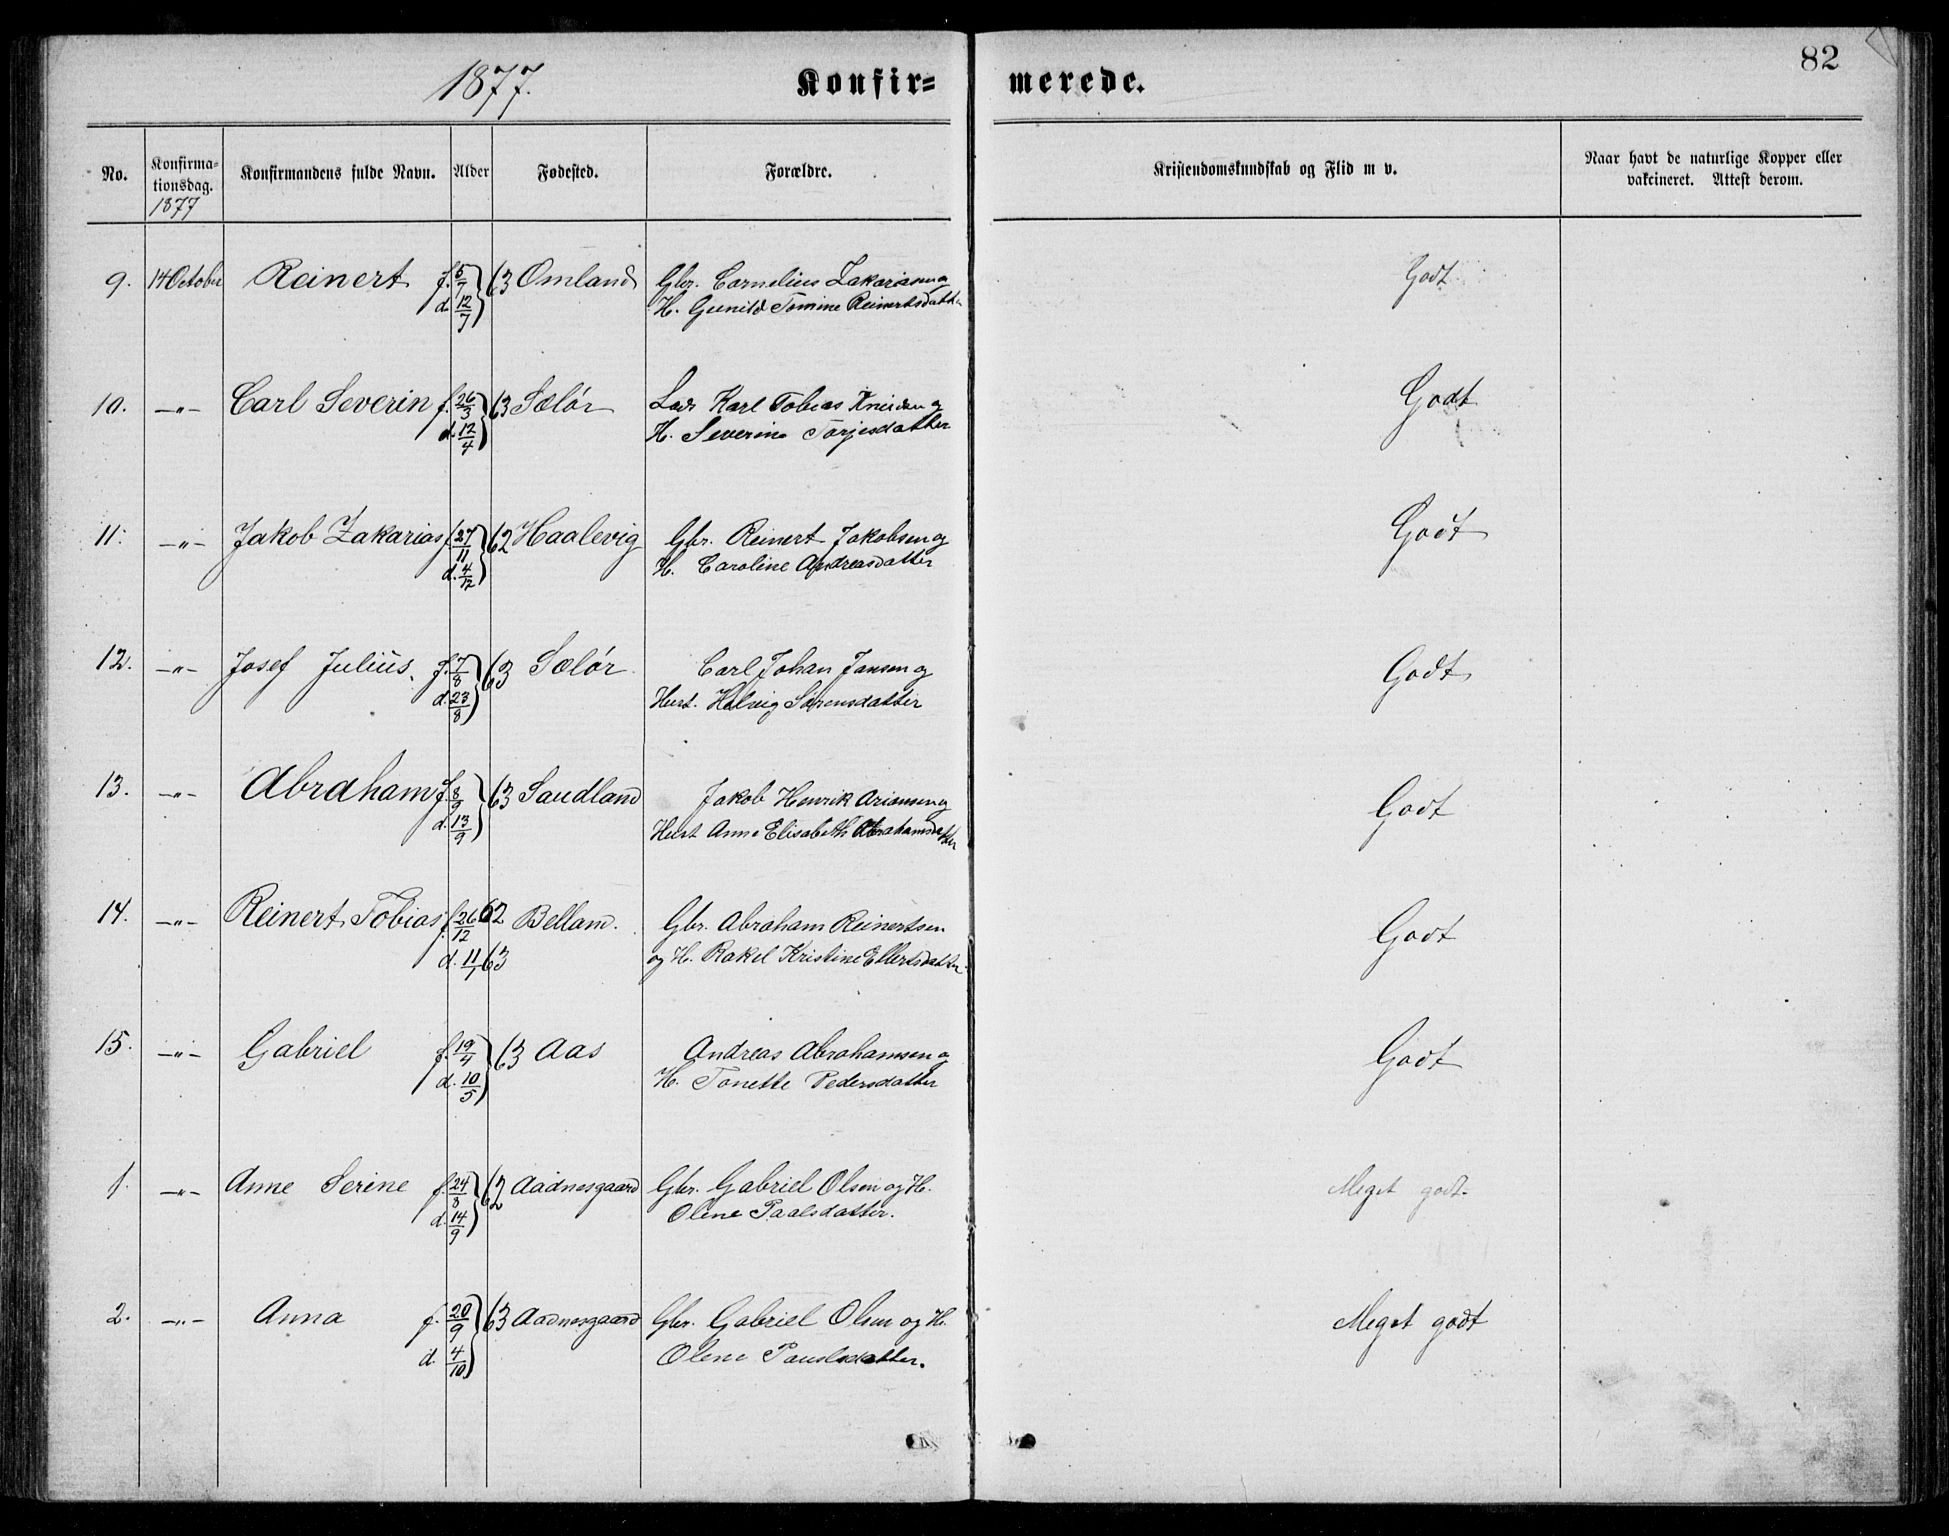 82
1877. Konfir= merede.
No. Konfirma-tionsdag. 1877 Konfirmandens fulde Navn. Alder Fødested. Forældre. Kristendomskundskab og Flid m v. Naar havt de naturlige Kopper eller vakcineret. Attest derom.
9. 14 October Reinert f. 5/7 d. 12/7 } 63 Omland Gbr. Cornelius Zakariasen og Godt
H. Gunild Tomine Reinertsdatter
10. —"— Carl Severin f. 26/3 d. 12/4 } 63 Selør Karl Tobias og Godt
H. Severine Torjesdatter
11. —"— Jakob Zakarias f. 27/11 d. 4/12 } 62 Haalevig Gbr. Reinert Jakobsen og Godt
H. Caroline Andreasdatter
12. —"— Josef Julius. f. 7/8 d. 23/8 } 63 Selør Carl Johan Jansen og Godt
Hust. Helvig Sørensdatter
13. —"— Abraham f. 8/9 d. 13/9 } 63 Sandland Jakob Henrik Arionsen og Godt
Hust Anne Elisabeth Abrahamsdatter
14. —"— Reinert Tobias f. 26/12 62 Bellam. Gbr. Abraham Reinertsen Godt
d. 11/1 63 og H. Rakel Kristine Ellertsdatter
15. —"— Gabriel f. 19/4 d. 10/5 } 63 Aas Andreas Abrahamsen og Godt
H. Tonette Pedersdatter
1. —"— Anne Serine f. 24/8 d. 14/9 } 62 Aadnesgaard Gbr. Gabriel Olsen og H. Meget godt.
Olene Paalsdatter.
2. —"— Anna f. 20/9 d. 4/10 } 63 Aadnesgaard Gbr. Gabriel Olsen og H. Meget godt
Olene Paulsdatter.